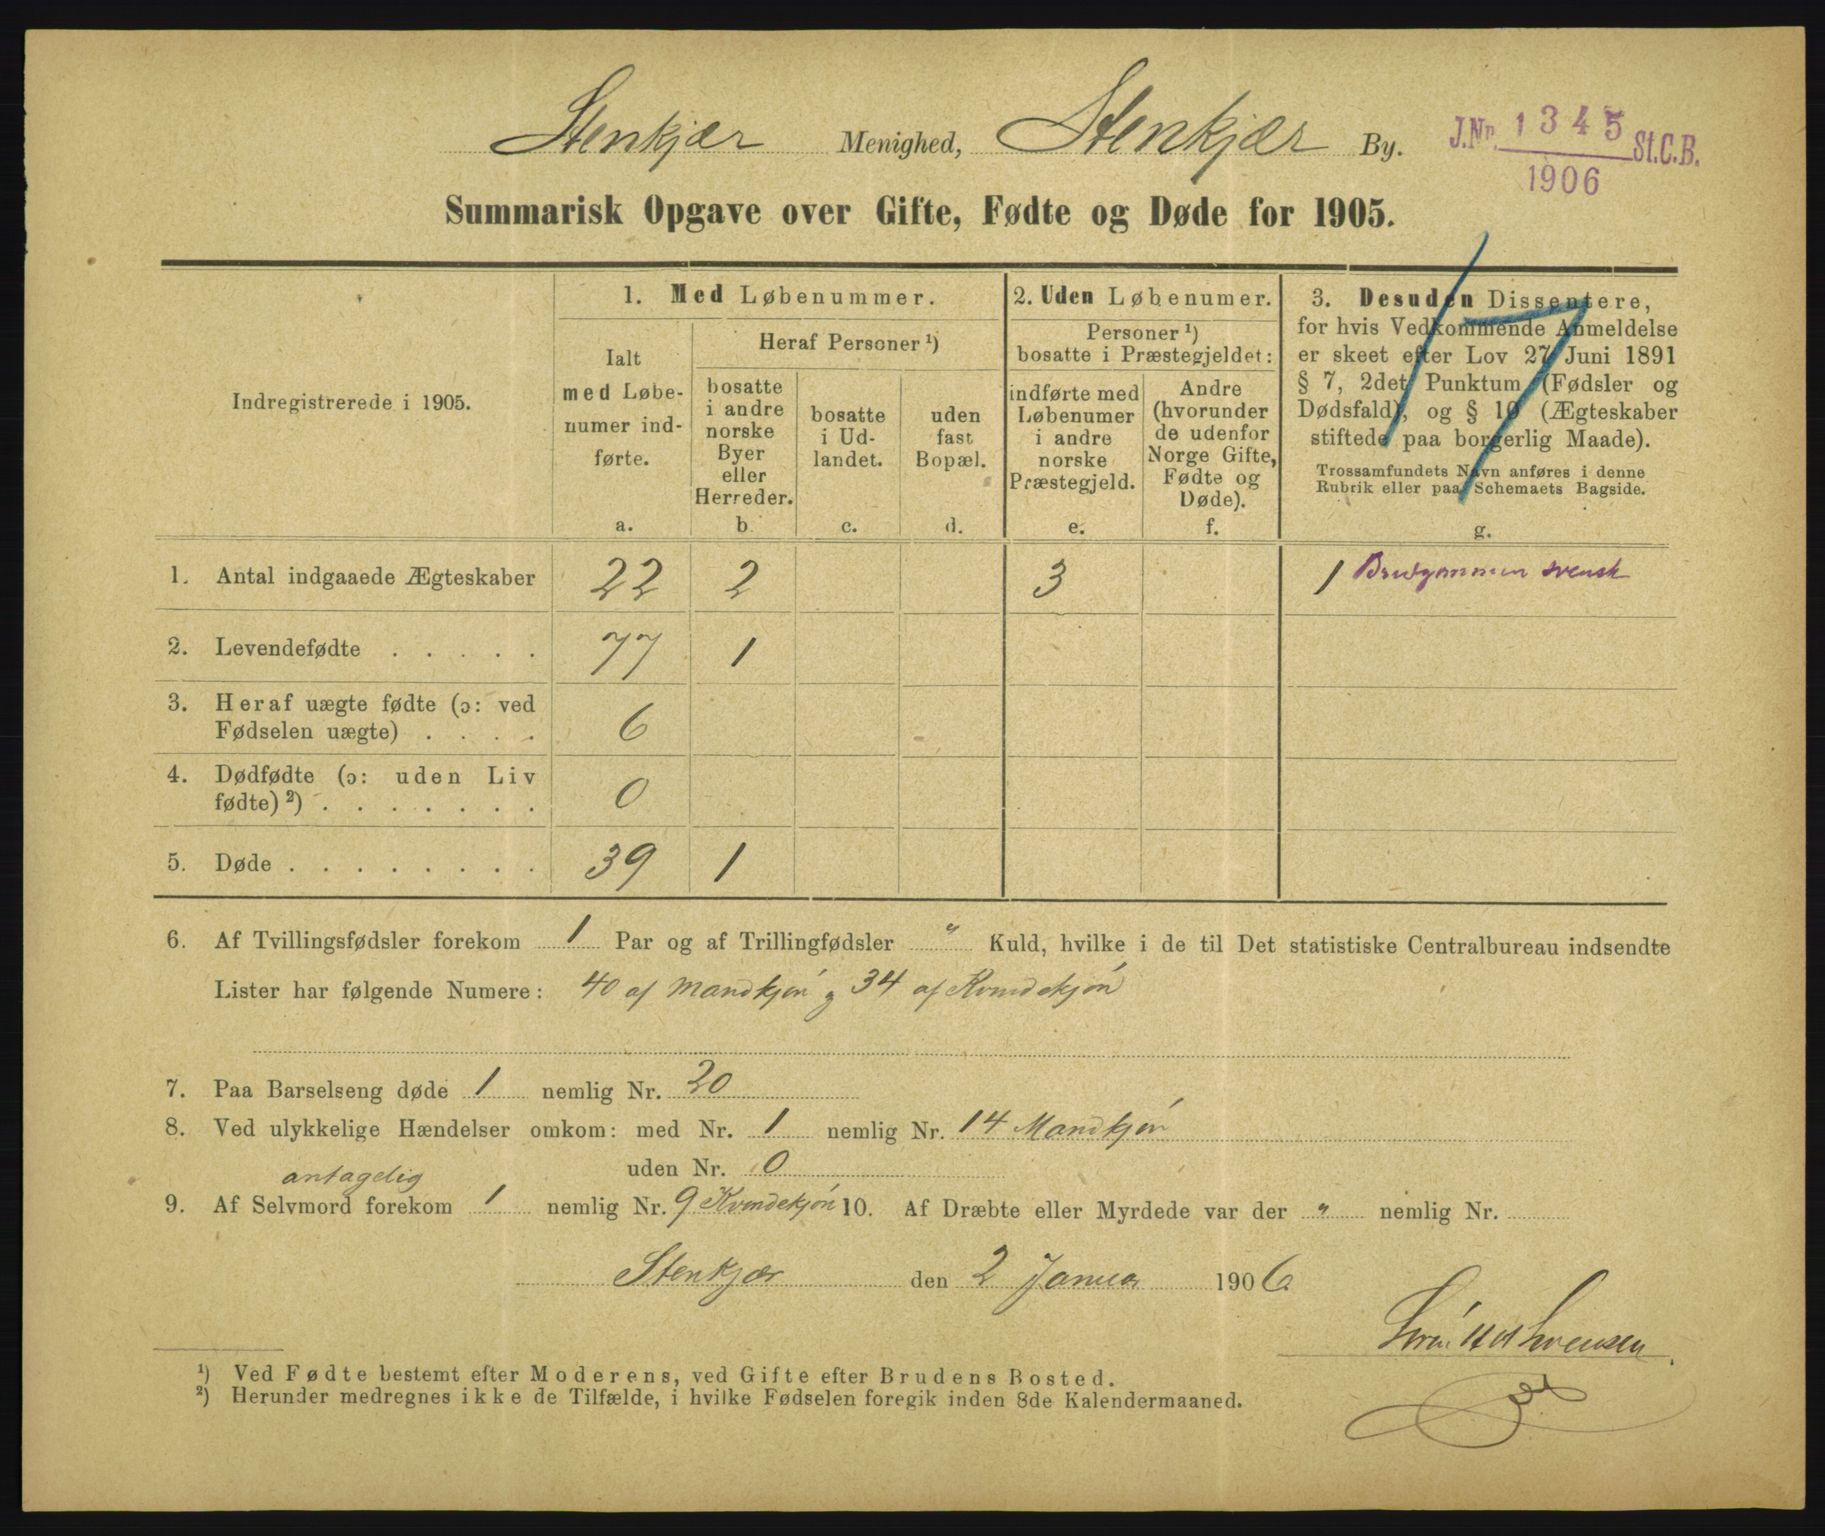 Stenkjær Menighed, Stenkjær By.
J.Nr. 1345 St.C.B.
1906
Summarisk Opgave over Gifte, Fødte og Døde for 1905.
17
Indregistrerede i 1905.
1. Med Løbenummer.
Ialt
med Løbe-
numer ind-
førte.
a.
Heraf Personer ¹)
bosatte
i andre
norske
Byer
eller
Herreder.
b.
bosatte
i Ud-
landet.
c.
uden
fast
Bopæl.
d.
2. Uden Løbenumer.
Personer ¹)
bosatte i Præstegjeldet:
indførte med
Løbenumer
i andre
norske
Præstegjeld.
e.
Andre
(hvorunder
de udenfor
Norge Gifte,
Fødte og
Døde).
f.
3. Desuden Dissentere,
for hvis Vedkommende Anmeldelse
er skeet efter Lov 27 Juni 1891
§ 7, 2det Punktum (Fødsler og
Dødsfald), og § 10 (Ægteskaber
stiftede paa borgerlig Maade).
Trossamfundets Navn anføres i denne
Rubrik eller paa Schemaets Bagside.
g.
1. Antal indgaaede Ægteskaber 22 2 3 1 Brudgommen svensk
2. Levendefødte . . . . . 77 1
3. Heraf uægte fødte (ɔ: ved
Fødselen uægte) . . . . 6
4. Dødfødte (ɔ: uden Liv
fødte) ²) . . . . . . . 0
5. Døde . . . . . . . . 39 1
6. Af Tvillingsfødsler forekom 1 Par og af Trillingfødsler " Kuld, hvilke i de til Det statistiske Centralbureau indsendte
Lister har følgende Numere: 40 af Mandkjön g 34 af Kvindekjön
7. Paa Barselseng døde 1 nemlig Nr. 20
8. Ved ulykkelige Hændelser omkom: med Nr. 1 nemlig Nr. 14 Mandkjön
uden Nr. 0
antagelig
9. Af Selvmord forekom 1 nemlig Nr. 9 Kvindekjön 10. Af Dræbte eller Myrdede var der " nemlig Nr.
Stenkjær den 2 Januar 1906
¹) Ved Fødte bestemt efter Moderens, ved Gifte efter Brudens Bosted.
²) Herunder medregnes ikke de Tilfælde, i hvilke Fødselen foregik inden 8de Kalendermaaned.